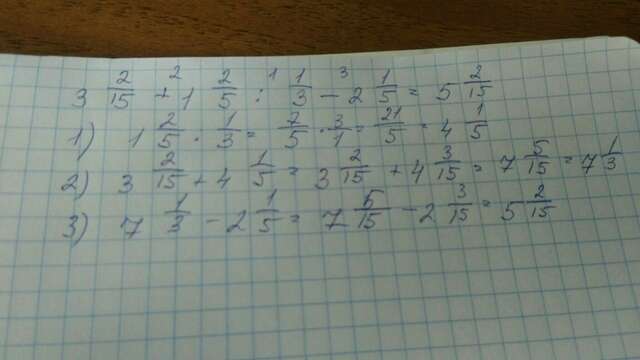 3 2/15 +² 1 2/5 :¹ 1/3 -³ 2 1/5 = 5 2/15
1) 1 2/5 · 1/3 = 7/5 · 3/1 = 21/5 = 4 1/5
2) 3 2/15 + 4 1/5 = 3 2/15 + 4 3/15 = 7 5/15 = 7 1/3
3) 7 1/3 - 2 1/5 = 7 5/15 - 2 3/15 = 5 2/15